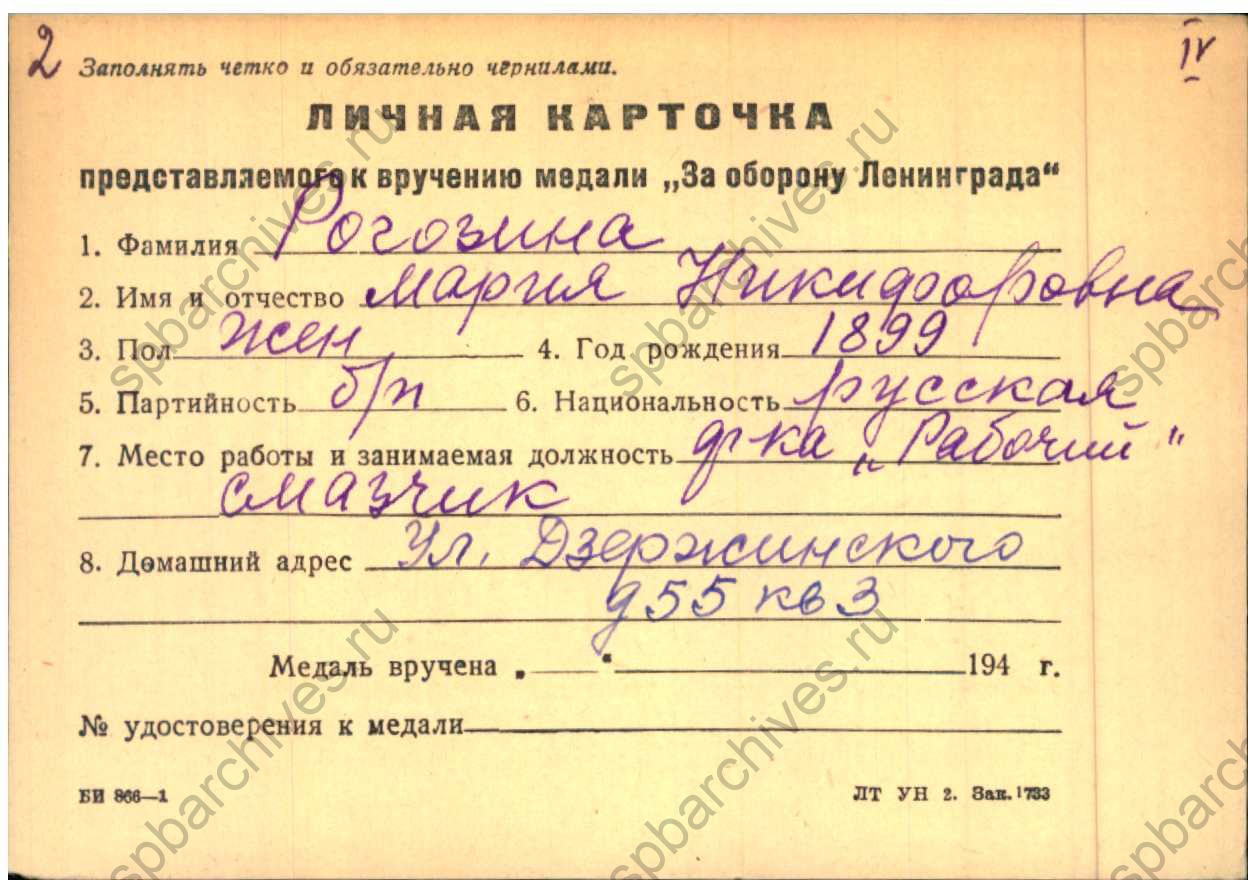 2 Заполнять четко и обязательно чернилами. IV
ЛИЧНАЯ КАРТОЧКА
представляемого к вручению медали „За оборону Ленинграда“
1. Фамилия Рогозина
2. Имя и отчество Мария Никифоровна
3. Пол жен 4. Год рождения 1899
5. Партийность б/п 6. Национальность русская
7. Место работы и занимаемая должность ф-ка „Рабочий"
смазчик
8. Домашний адрес Ул. Дзержинского
д 55 кв 3
Медаль вручена „ “ 194 г.
№ удостоверения к медали
БИ 866—1 ЛТ УН 2. Зак. 1733
spbarchives.ru
spbarchives.ru
spbarchives.ru
spbarchives.ru
spbarchives.ru
spbarchives.ru